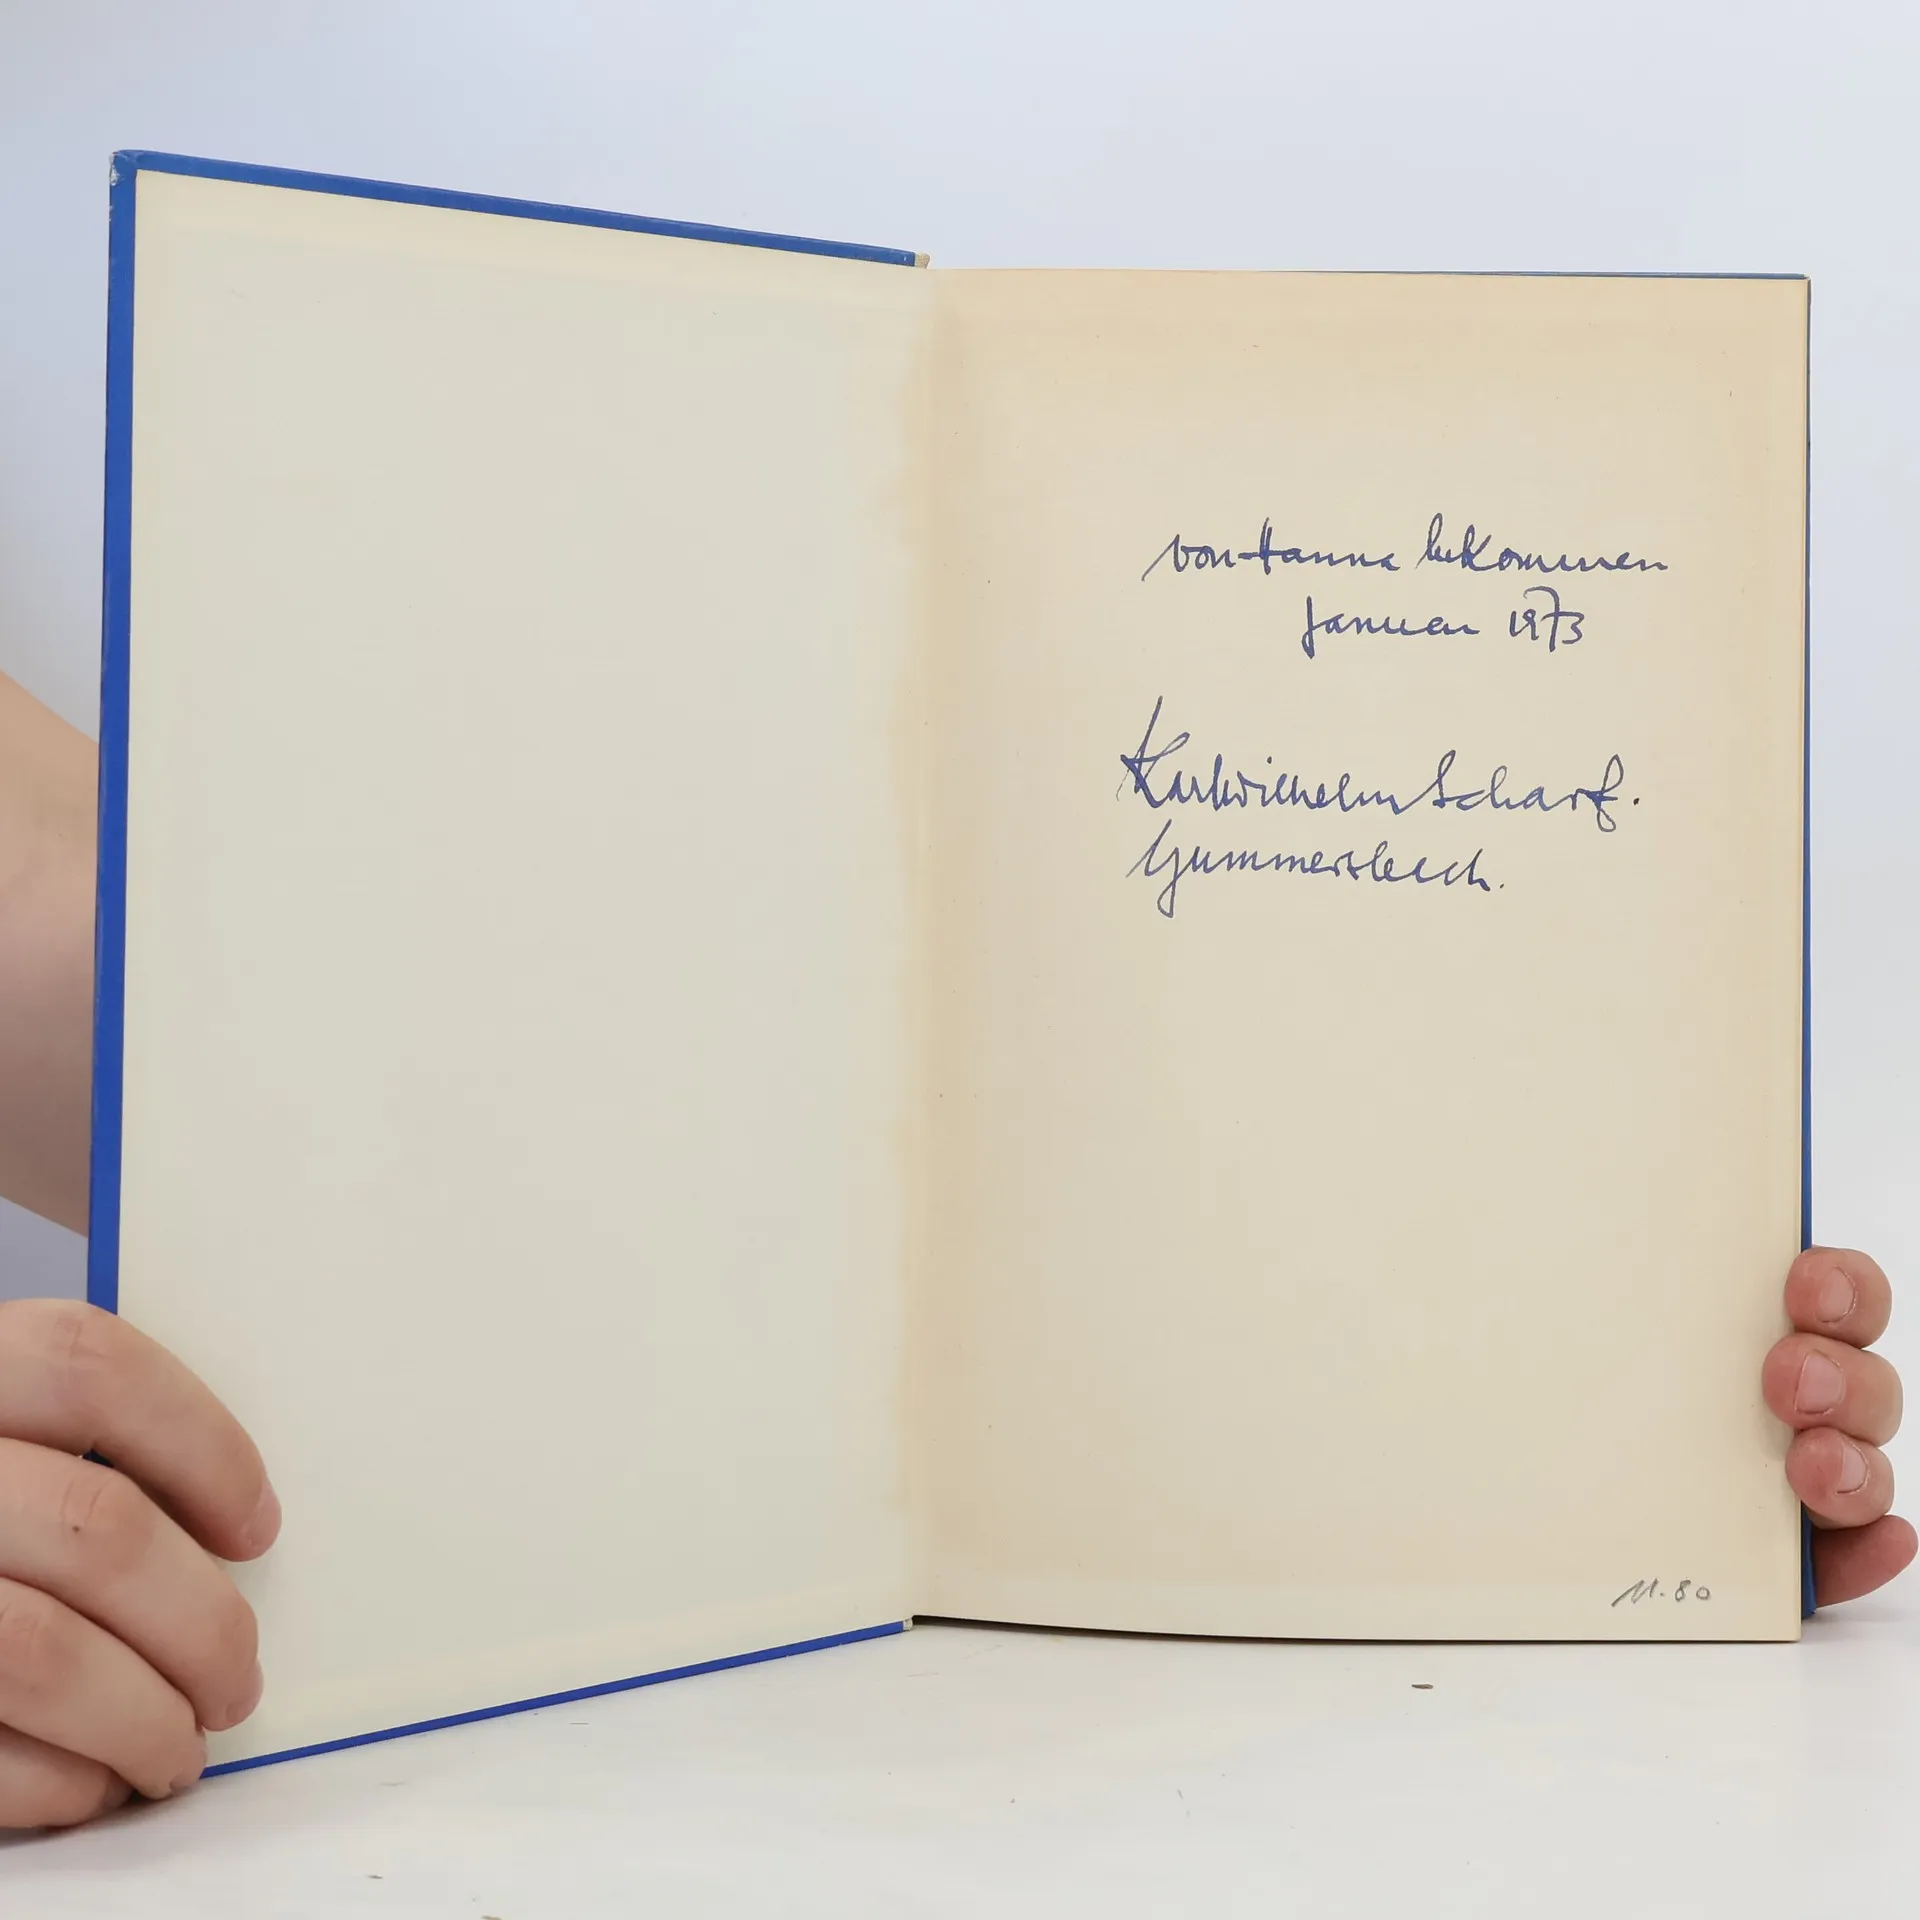 von Hanna bekommen
Januar 1973
Karlwilhelm Scharf.
Gummersbach.
11.80